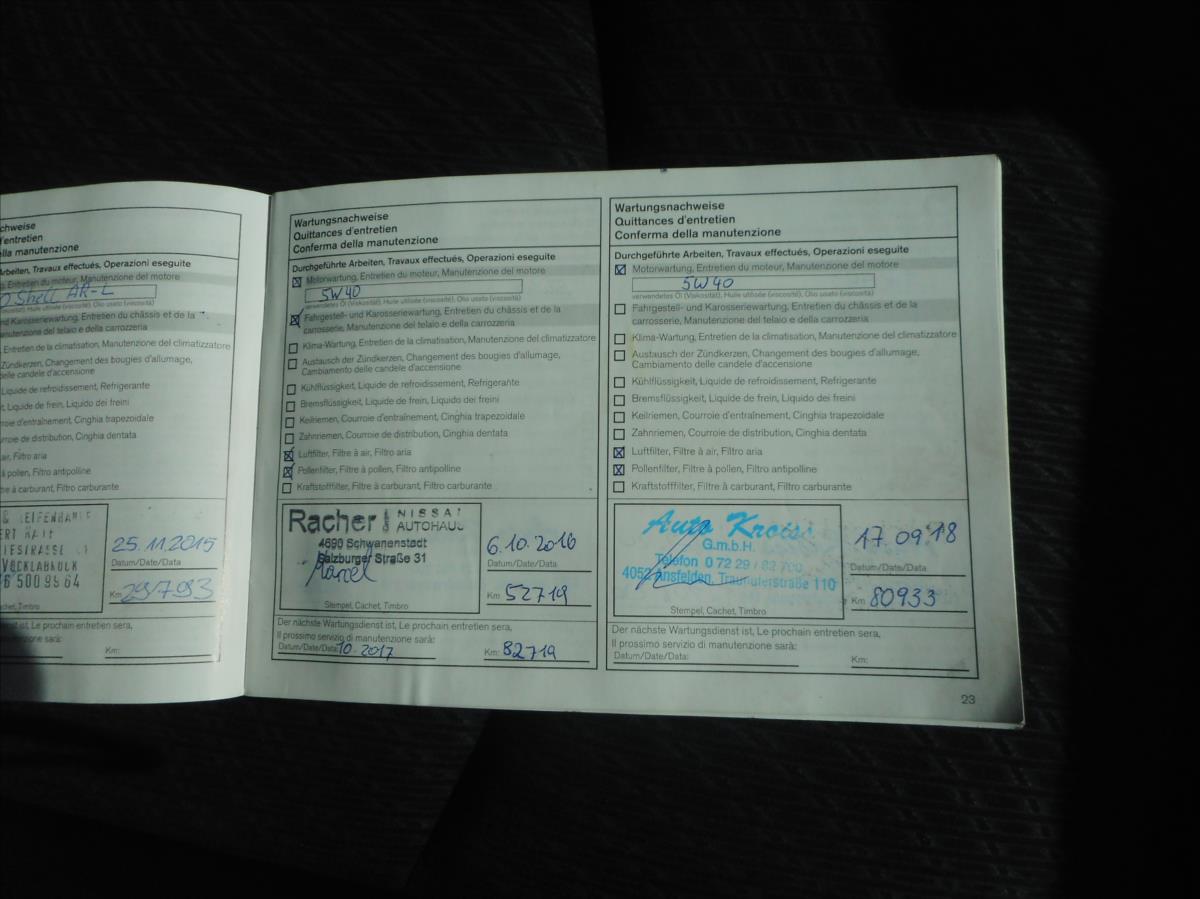 chweise
d'entretien
ella manutenzione
Arbeiten, Travaux effectués, Operazioni eseguite
en du moteur, Manutenzione del motore
O Shell AR-L
cosité), Olio usato (viscosità)
nd Karosseriewartung, Entretien du châssis et de la
anutenzione del telaio e della carrozzeria
Entretien de la climatisation, Manutenzione del climatizzatore
Zündkerzen, Changement des bougies d'allumage,
delle candele d'accensione
Liquide de refroidissement, Refrigerante
t, Liquide de frein, Liquido dei freini
roie d'entraînement, Cinghia trapezoidale
urroie de distribution, Cinghia dentata
air, Filtro aria
à pollen, Filtro antipolline
tre à carburant, Filtro carburante
VÖCKLABRUCK
6 500 99 64
25.11.2015
Datum/Date/Data
Km
chet, Timbro
st ist, Le prochain entretien sera,
di manutenzione sarà:
Km:
Wartungsnachweise
Quittances d'entretien
Conferma della manutenzione
Durchgeführte Arbeiten, Travaux effectués, Operazioni eseguite
Motorwartung, Entretien du moteur, Manutenzione del motore
5W40
verwendetes Öl (Viskosität), Huile utilisée (viscosité), Olio usato (viscosità)
Fahrgestell- und Karosseriewartung, Entretien du châssis et de la
carrosserie, Manutenzione del telaio e della carrozzeria
Klima-Wartung, Entretien de la climatisation, Manutenzione del climatizzatore
Austausch der Zündkerzen, Changement des bougies d'allumage,
Cambiamento delle candele d'accensione
Kühlflüssigkeit, Liquide de refroidissement, Refrigerante
Bremsflüssigkeit, Liquide de frein, Liquido dei freini
Keilriemen, Courroie d'entraînement, Cinghia trapezoidale
Zahnriemen, Courroie de distribution, Cinghia dentata
Luftfilter, Filtre à air, Filtro aria
Pollenfilter, Filtre à pollen, Filtro antipolline
Kraftstofffilter, Filtre à carburant, Filtro carburante
Racher NISSAN
AUTOHAUS
4690 Schwanenstadt
Salzburger Straße 31
Marcel
6.10.2016
Datum/Date/Data
Km 52719
Stempel, Cachet, Timbro
Der nächste Wartungsdienst ist, Le prochain entretien sera,
Il prossimo servizio di manutenzione sarà:
Datum/Date/Data: 10.2017
Km: 82719
Wartungsnachweise
Quittances d'entretien
Conferma della manutenzione
Durchgeführte Arbeiten, Travaux effectués, Operazioni eseguite
Motorwartung, Entretien du moteur, Manutenzione del motore
5W40
verwendetes Öl (Viskosität), Huile utilisée (viscosité), Olio usato (viscosità)
Fahrgestell- und Karosseriewartung, Entretien du châssis et de la
carrosserie, Manutenzione del telaio e della carrozzeria
Klima-Wartung, Entretien de la climatisation, Manutenzione del climatizzatore
Austausch der Zündkerzen, Changement des bougies d'allumage,
Cambiamento delle candele d'accensione
Kühlflüssigkeit, Liquide de refroidissement, Refrigerante
Bremsflüssigkeit, Liquide de frein, Liquido dei freini
Keilriemen, Courroie d'entraînement, Cinghia trapezoidale
Zahnriemen, Courroie de distribution, Cinghia dentata
Luftfilter, Filtre à air, Filtro aria
Pollenfilter, Filtre à pollen, Filtro antipolline
Kraftstofffilter, Filtre à carburant, Filtro carburante
Auto
G.m.b.H.
Telefon 0 72 29 /
4052 Ansfelden, Traunuferstraße 110
17.09.18
Datum/Date/Data
Km 80933
Stempel, Cachet, Timbro
Der nächste Wartungsdienst ist, Le prochain entretien sera,
Il prossimo servizio di manutenzione sarà:
Datum/Date/Data:
Km:
23